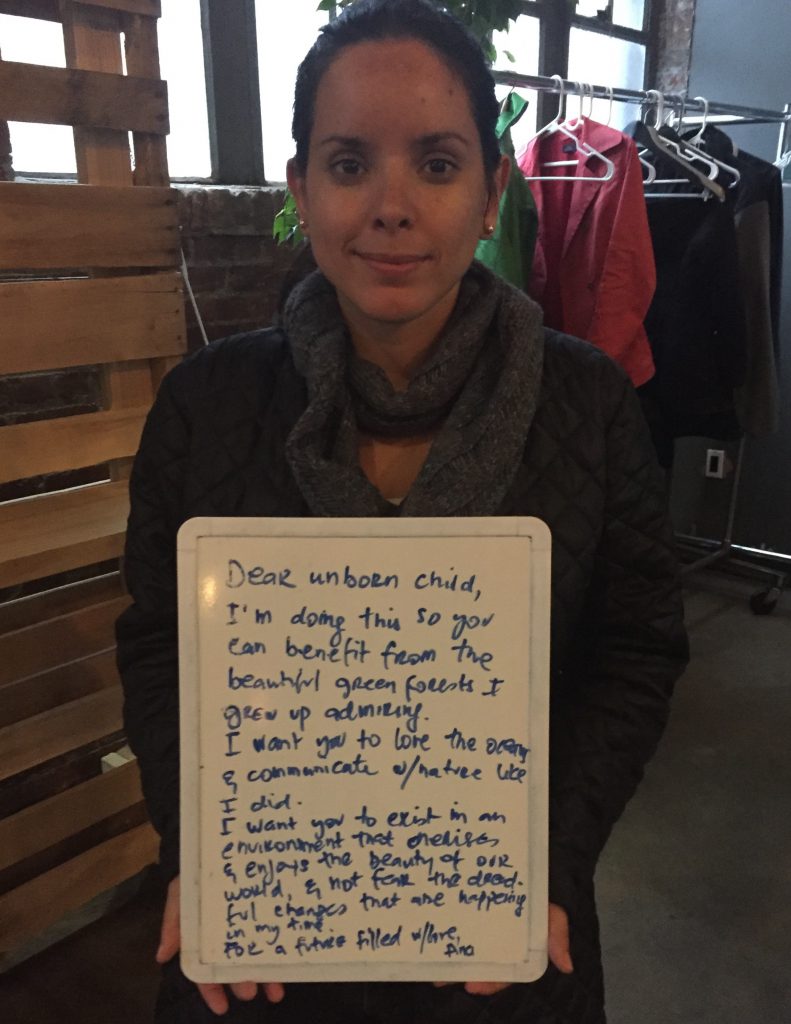 Dear unborn child,
I'm doing this so you
can benefit from the
beautiful green forests I
grew up admiring.
I want you to love the ocean
& communicate w/nature like
I did.
I want you to exist in an
environment that
& enjoys the beauty of our
world, & not fear the dread-
ful changes that are happening
in my time.
For a future filled w/love,